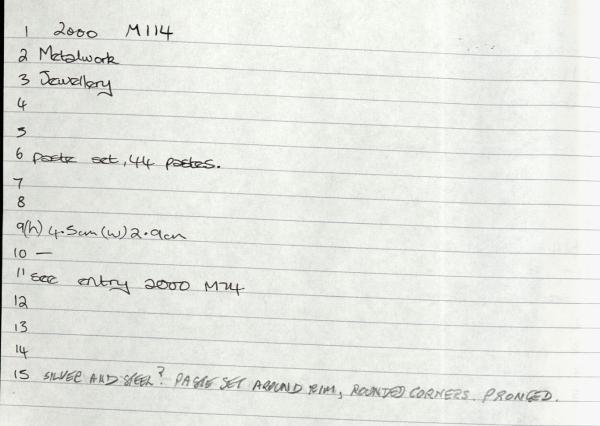 1 2000 M114
2 Metalwork
3 Jewellery
4
5
6 paste set, 44 pastes.
7
8
9(h) 4.5cm (w) 2.9cm
10 —
11 see entry 2000 M74
12
13
14
15 SILVER AND STEEL? PASTE SET AROUND RIM, ROUNDED CORNERS. PRONGED.